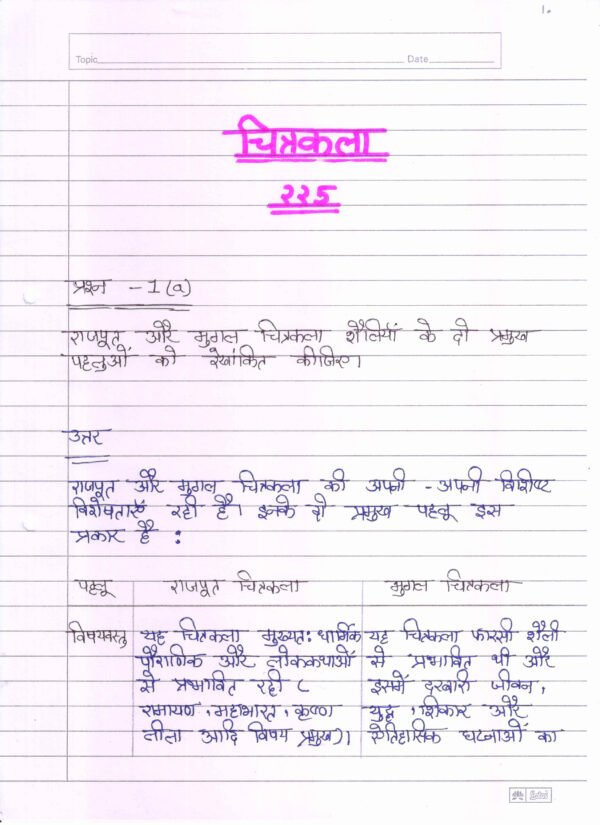 1.
Topic Date
चित्रकला
225
प्रश्न - 1 (a)
राजपूत और मुगल चित्रकला शैलियों के दो प्रमुख
पहलुओं को रेखांकित कीजिए।
उत्तर
राजपूत और मुगल चित्रकला की अपनी - अपनी विशिष्ट
विशेषताएँ रही हैं। इनके दो प्रमुख पहलू इस
प्रकार हैं :
पहलू राजपूत चित्रकला मुगल चित्रकला
विषयवस्तु यह चित्रकला मुख्यत: धार्मिक यह चित्रकला फारसी शैली
पौराणिक और लोककथाओं से प्रभावित थी और
से प्रभावित रही ( इसमें दरबारी जीवन,
रामायण, महाभारत, कृष्ण युद्ध, शिकार और
लीला आदि विषय प्रमुख)। ऐतिहासिक घटनाओं का